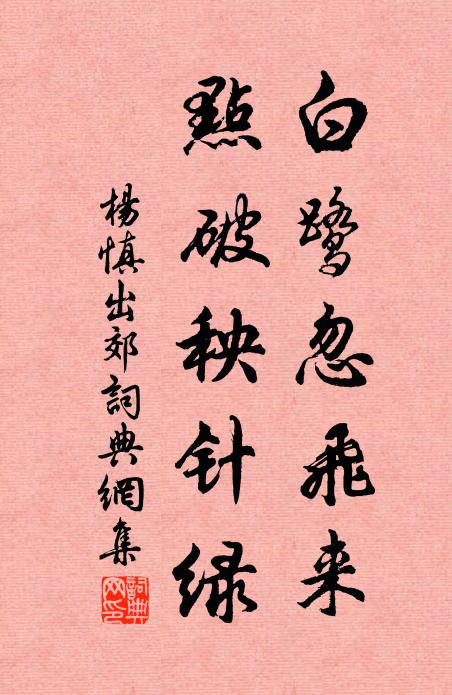 白鹭忽飛来
點破秧针绿
楊慎出郊詞典網集
詞典网印